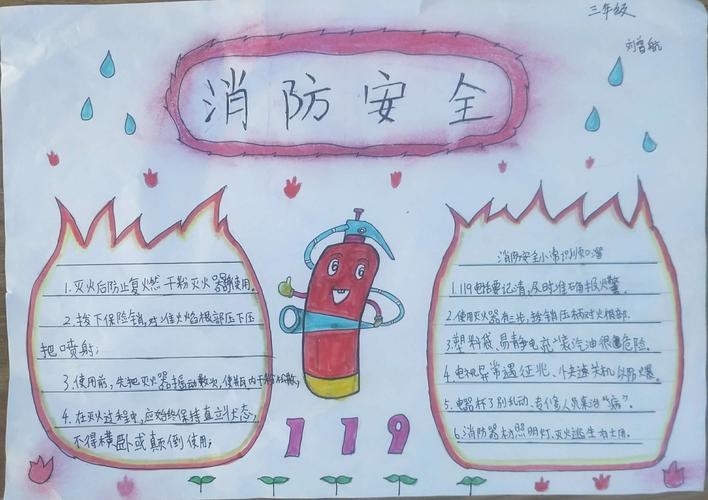 三年级
刘曾航
消防安全
1.灭火后防止复燃 干粉灭火器使用。
2.拨下保险销,对准火焰根部压下压
把喷射;
3.使用前,先把灭火器摇动数次,使瓶内干粉松散;
4.在灭火过程中,应始终保持直立状态,
不得横卧或颠倒使用;
119
消防安全小常识
1.119电话要记清,及时准确报火警。
2.使用灭火器有三步,拨销压柄对火根部。
3.塑料袋、易静电,充装汽油很危险。
4.电机异常遇征兆、关机以防爆。
5.电器坏了别乱动、专人来治"病"。
6.消防器材照明灯、灭火逃生